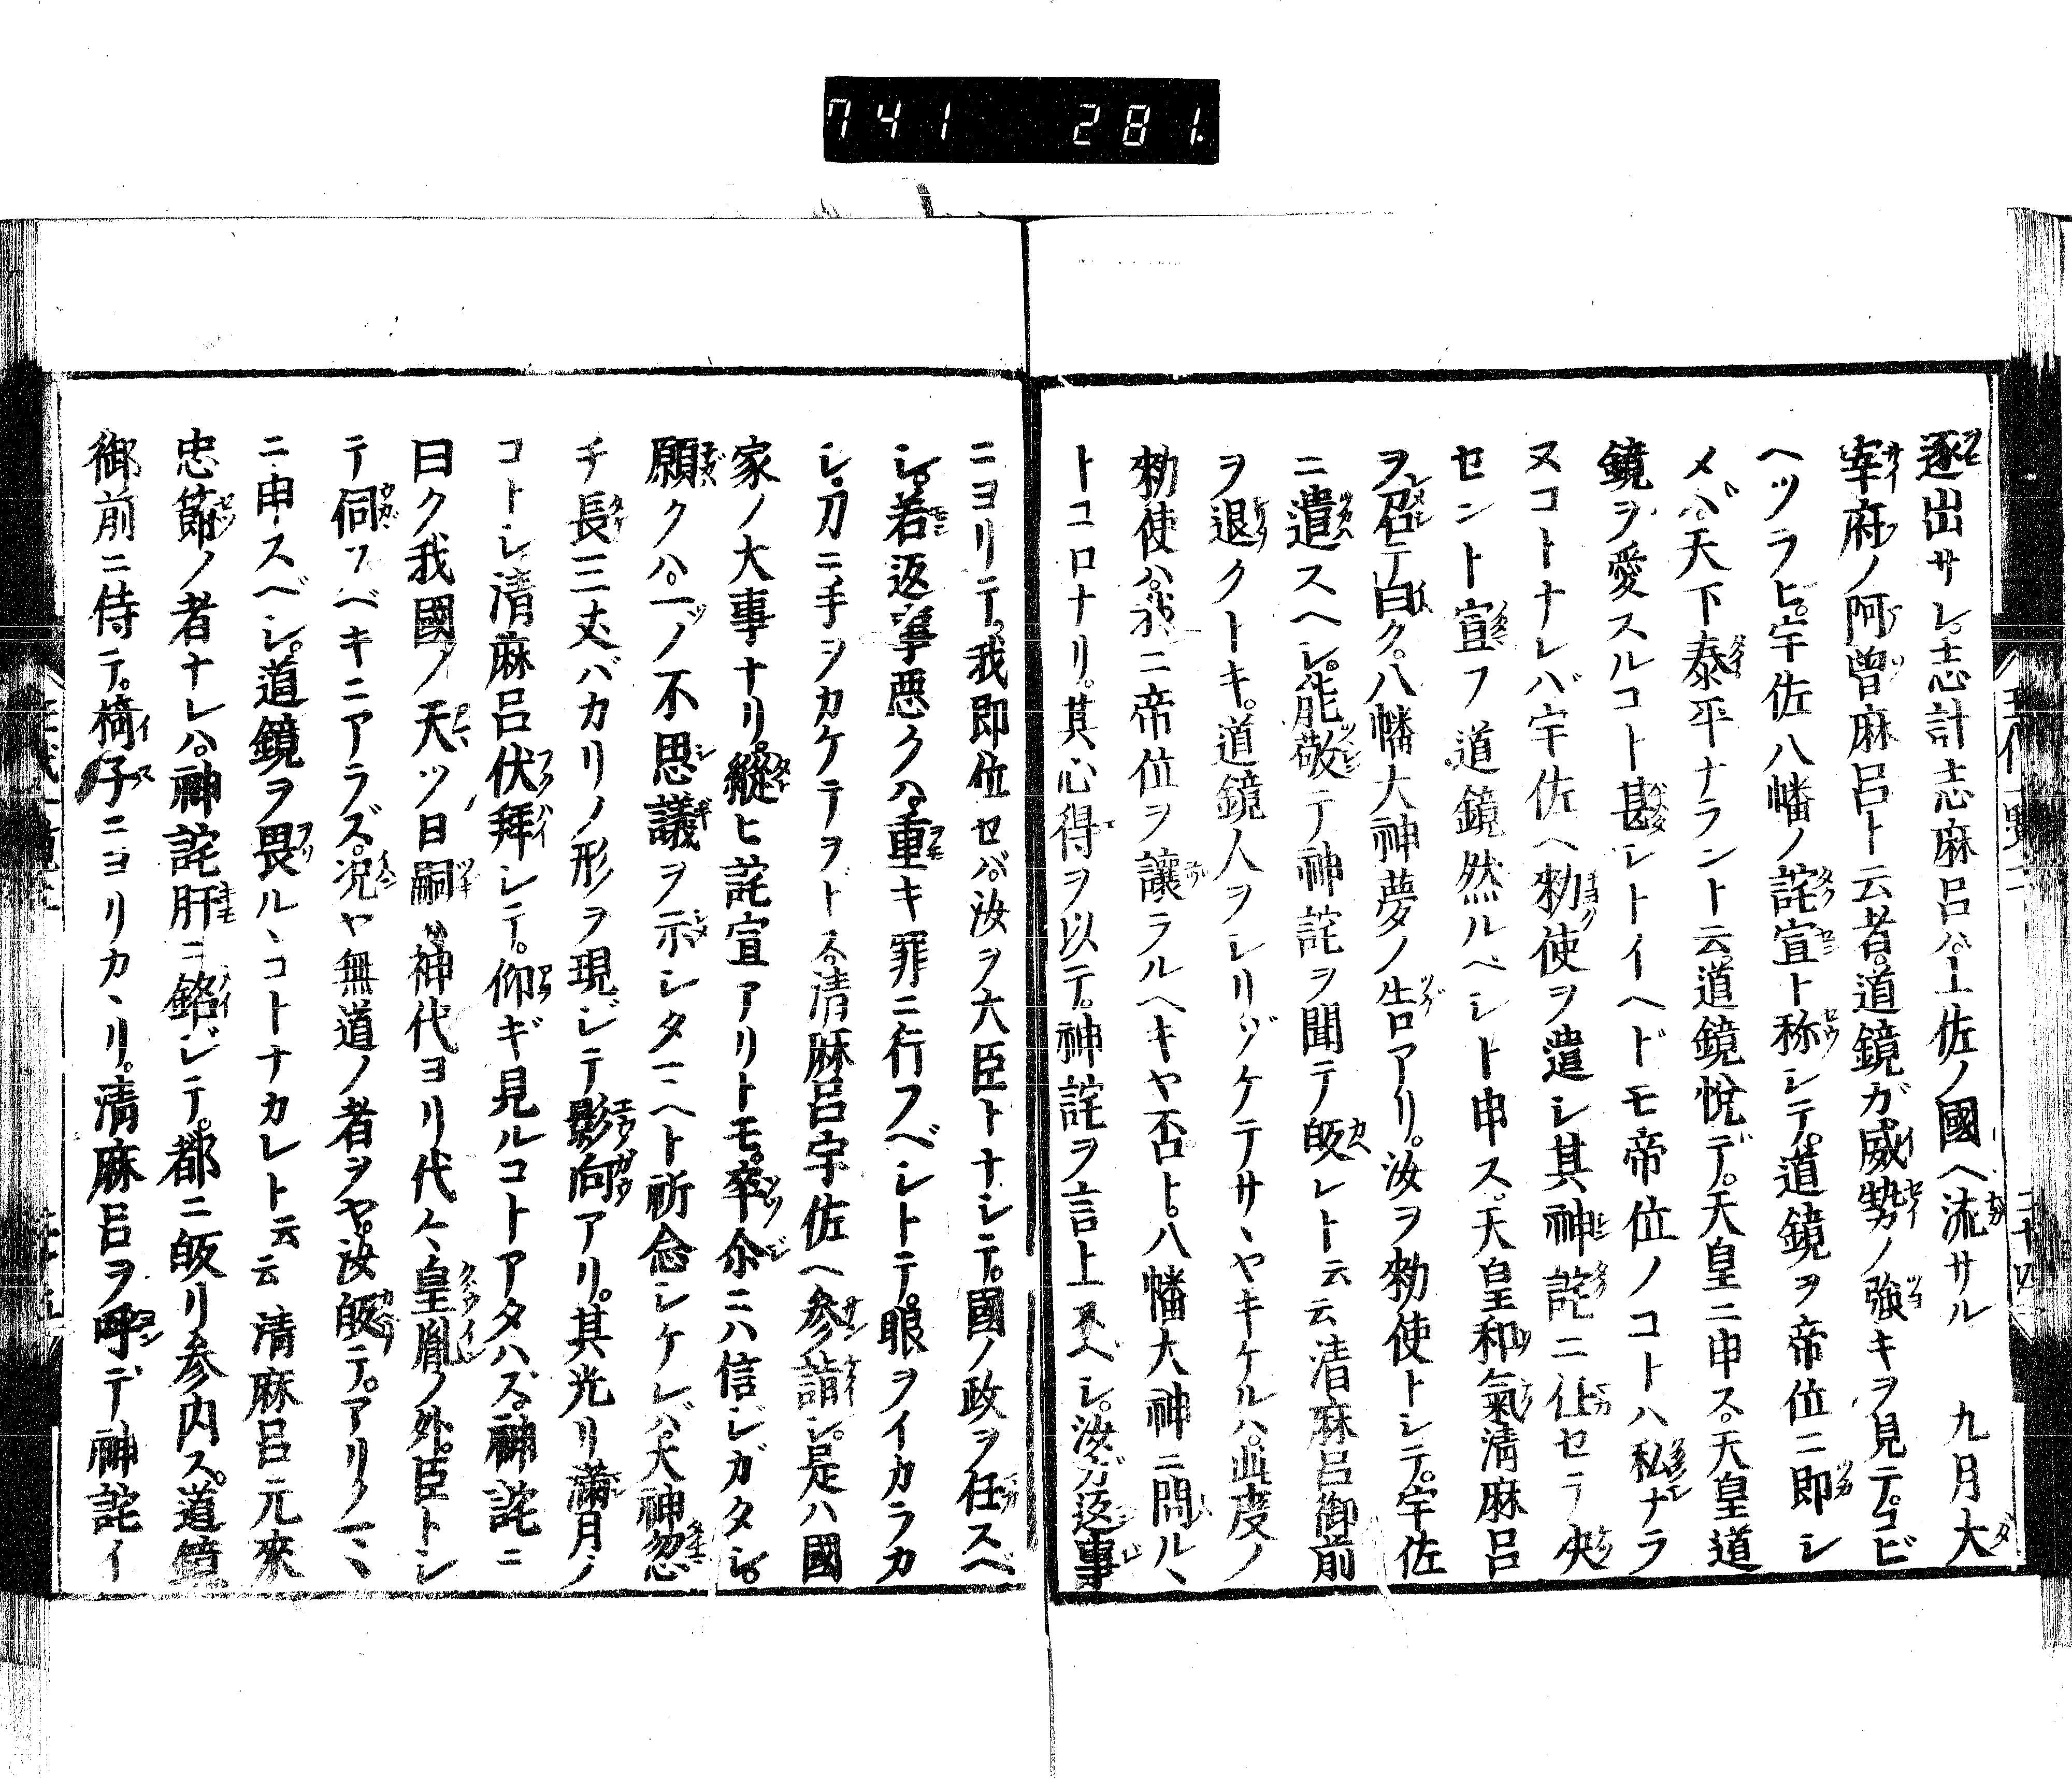 741 281
逐出サレ。志計志麻呂ハ。土佐ノ國ヘ流サル 九月大
宰府ノ阿曽麻呂ト云者。道鏡ガ威勢ノ強キヲ見テ。コビ
ヘツラヒ。宇佐八幡ノ詫宣ト称シテ。道鏡ヲ帝位ニ即シ
メバ天下泰平ナラント云。道鏡悦デ。天皇ニ申ス。天皇道
鏡ヲ愛スルコト甚シトイヘドモ帝位ノコトハ私ナラ
ヌコトナレバ宇佐ヘ勅使ヲ遣シ其神詫ニ任セテ决
セント宣フ道鏡然ルベシト申ス。天皇和氣清麻呂
ヲ召テ白ク。八幡大神夢ノ告アリ。汝ヲ勅使トシテ。宇佐
ニ遣スヘシ。能敬テ神詫ヲ聞テ皈レト云云清麻呂御前
ヲ退クトキ。道鏡人ヲシリゾケテサヽヤキケルハ。此度ノ
勅使ハ。我ニ帝位ヲ讓ラルヘキヤ否ト。八幡大神ニ問ルヽ
トコロナリ。其心得ヲ以テ。神詫ヲ言上スベシ。汝ガ返事
ニヨリテ。我即位セバ。汝ヲ大臣トナシテ。國ノ政ヲ任スベ
シ。若返事悪クハ。重キ罪ニ行フベシトテ。眼ヲイカラカ
シ。刀ニ手ヲカケテヲドス。清麻呂宇佐ヘ参詣シ。是ハ國
家ノ大事ナリ。縦ヒ詫宣アリトモ。卒尒ニハ信ジガタシ。
願クハ。一ツノ不思議ヲ示シタマヘト祈念シケレバ。大神忽
チ長三丈バカリノ形ヲ現ジテ影向アリ。其光リ満月ノ
コトシ清麻呂伏拜シテ。仰ギ見ルコトアタハズ。神詫ニ
曰ク我國ノ天ツ日嗣ハ神代ヨリ代々皇胤ノ外。臣トシ
テ伺フベキニアラズ。况ヤ無道ノ者ヲヤ。汝皈テ。アリノマヽ
ニ申スベシ。道鏡ヲ畏ルヽコトナカレト云云 清麻呂元來
忠節ノ者ナレハ。神詫肝ニ銘ジテ。都ニ皈リ参内ス。道鏡
御前ニ侍テ。椅子ニヨリカヽリ。清麻呂ヲ呼デ神詫イ